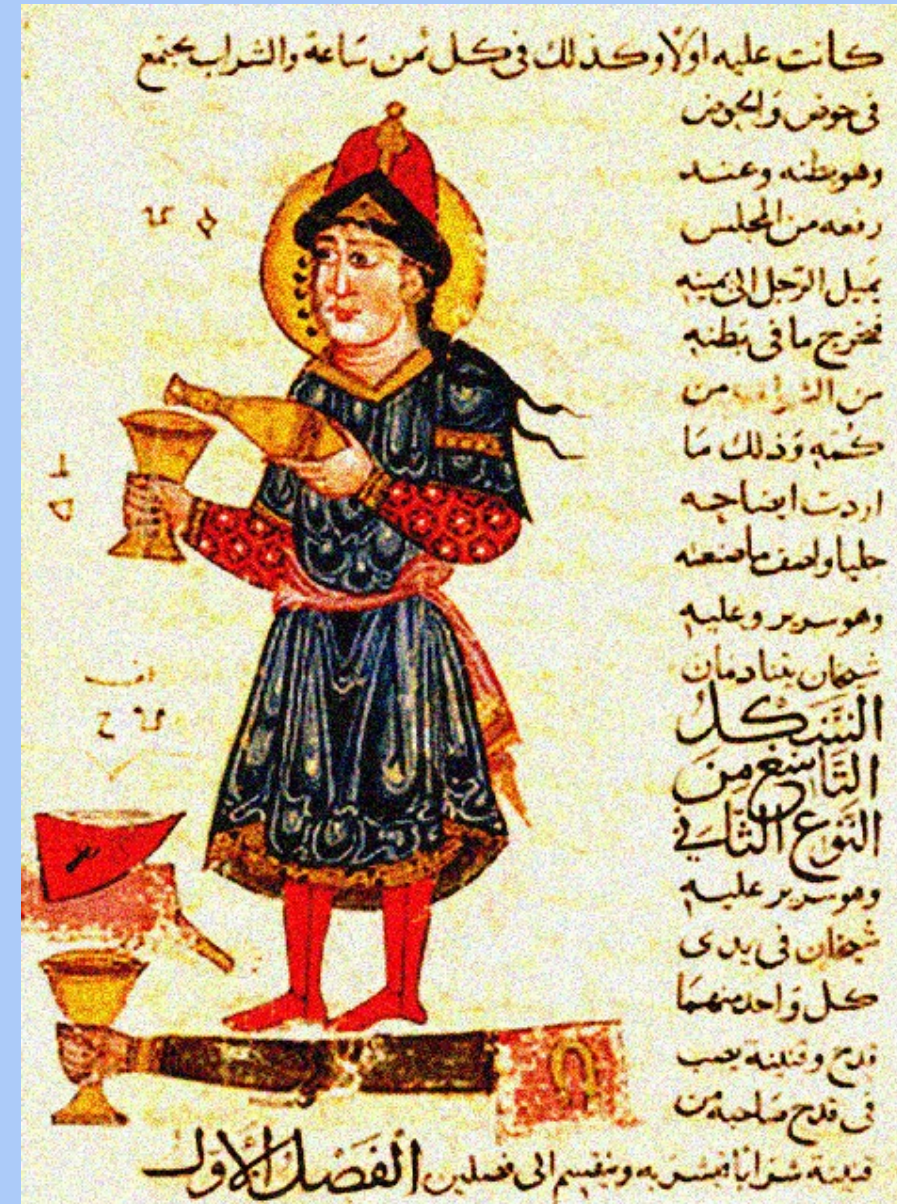 كانت عليه اولًا وكذلك فى كل ثمن ساعة والشراب يجتمع
فى حوض والحوض
وهو بطنه وعند
رفعه من المجلس
يميل الرجل الى يمينه
فيخرج ما فى بطنه
من الشراب من
كمه وذلك ما
اردت ايضاحه
جليا واصف ما صنعته
وهو سرير وعليه
شيخان يتنادمان
الشكل
التاسع من
النوع الثاني
وهو سرير عليه
شيخان فى يدى
كل واحد منهما
قدح وقنينة يصب
فى قدح صاحبه من
قنينة شرابا فيشربه وينقسم الى فصلين الفصل الاول